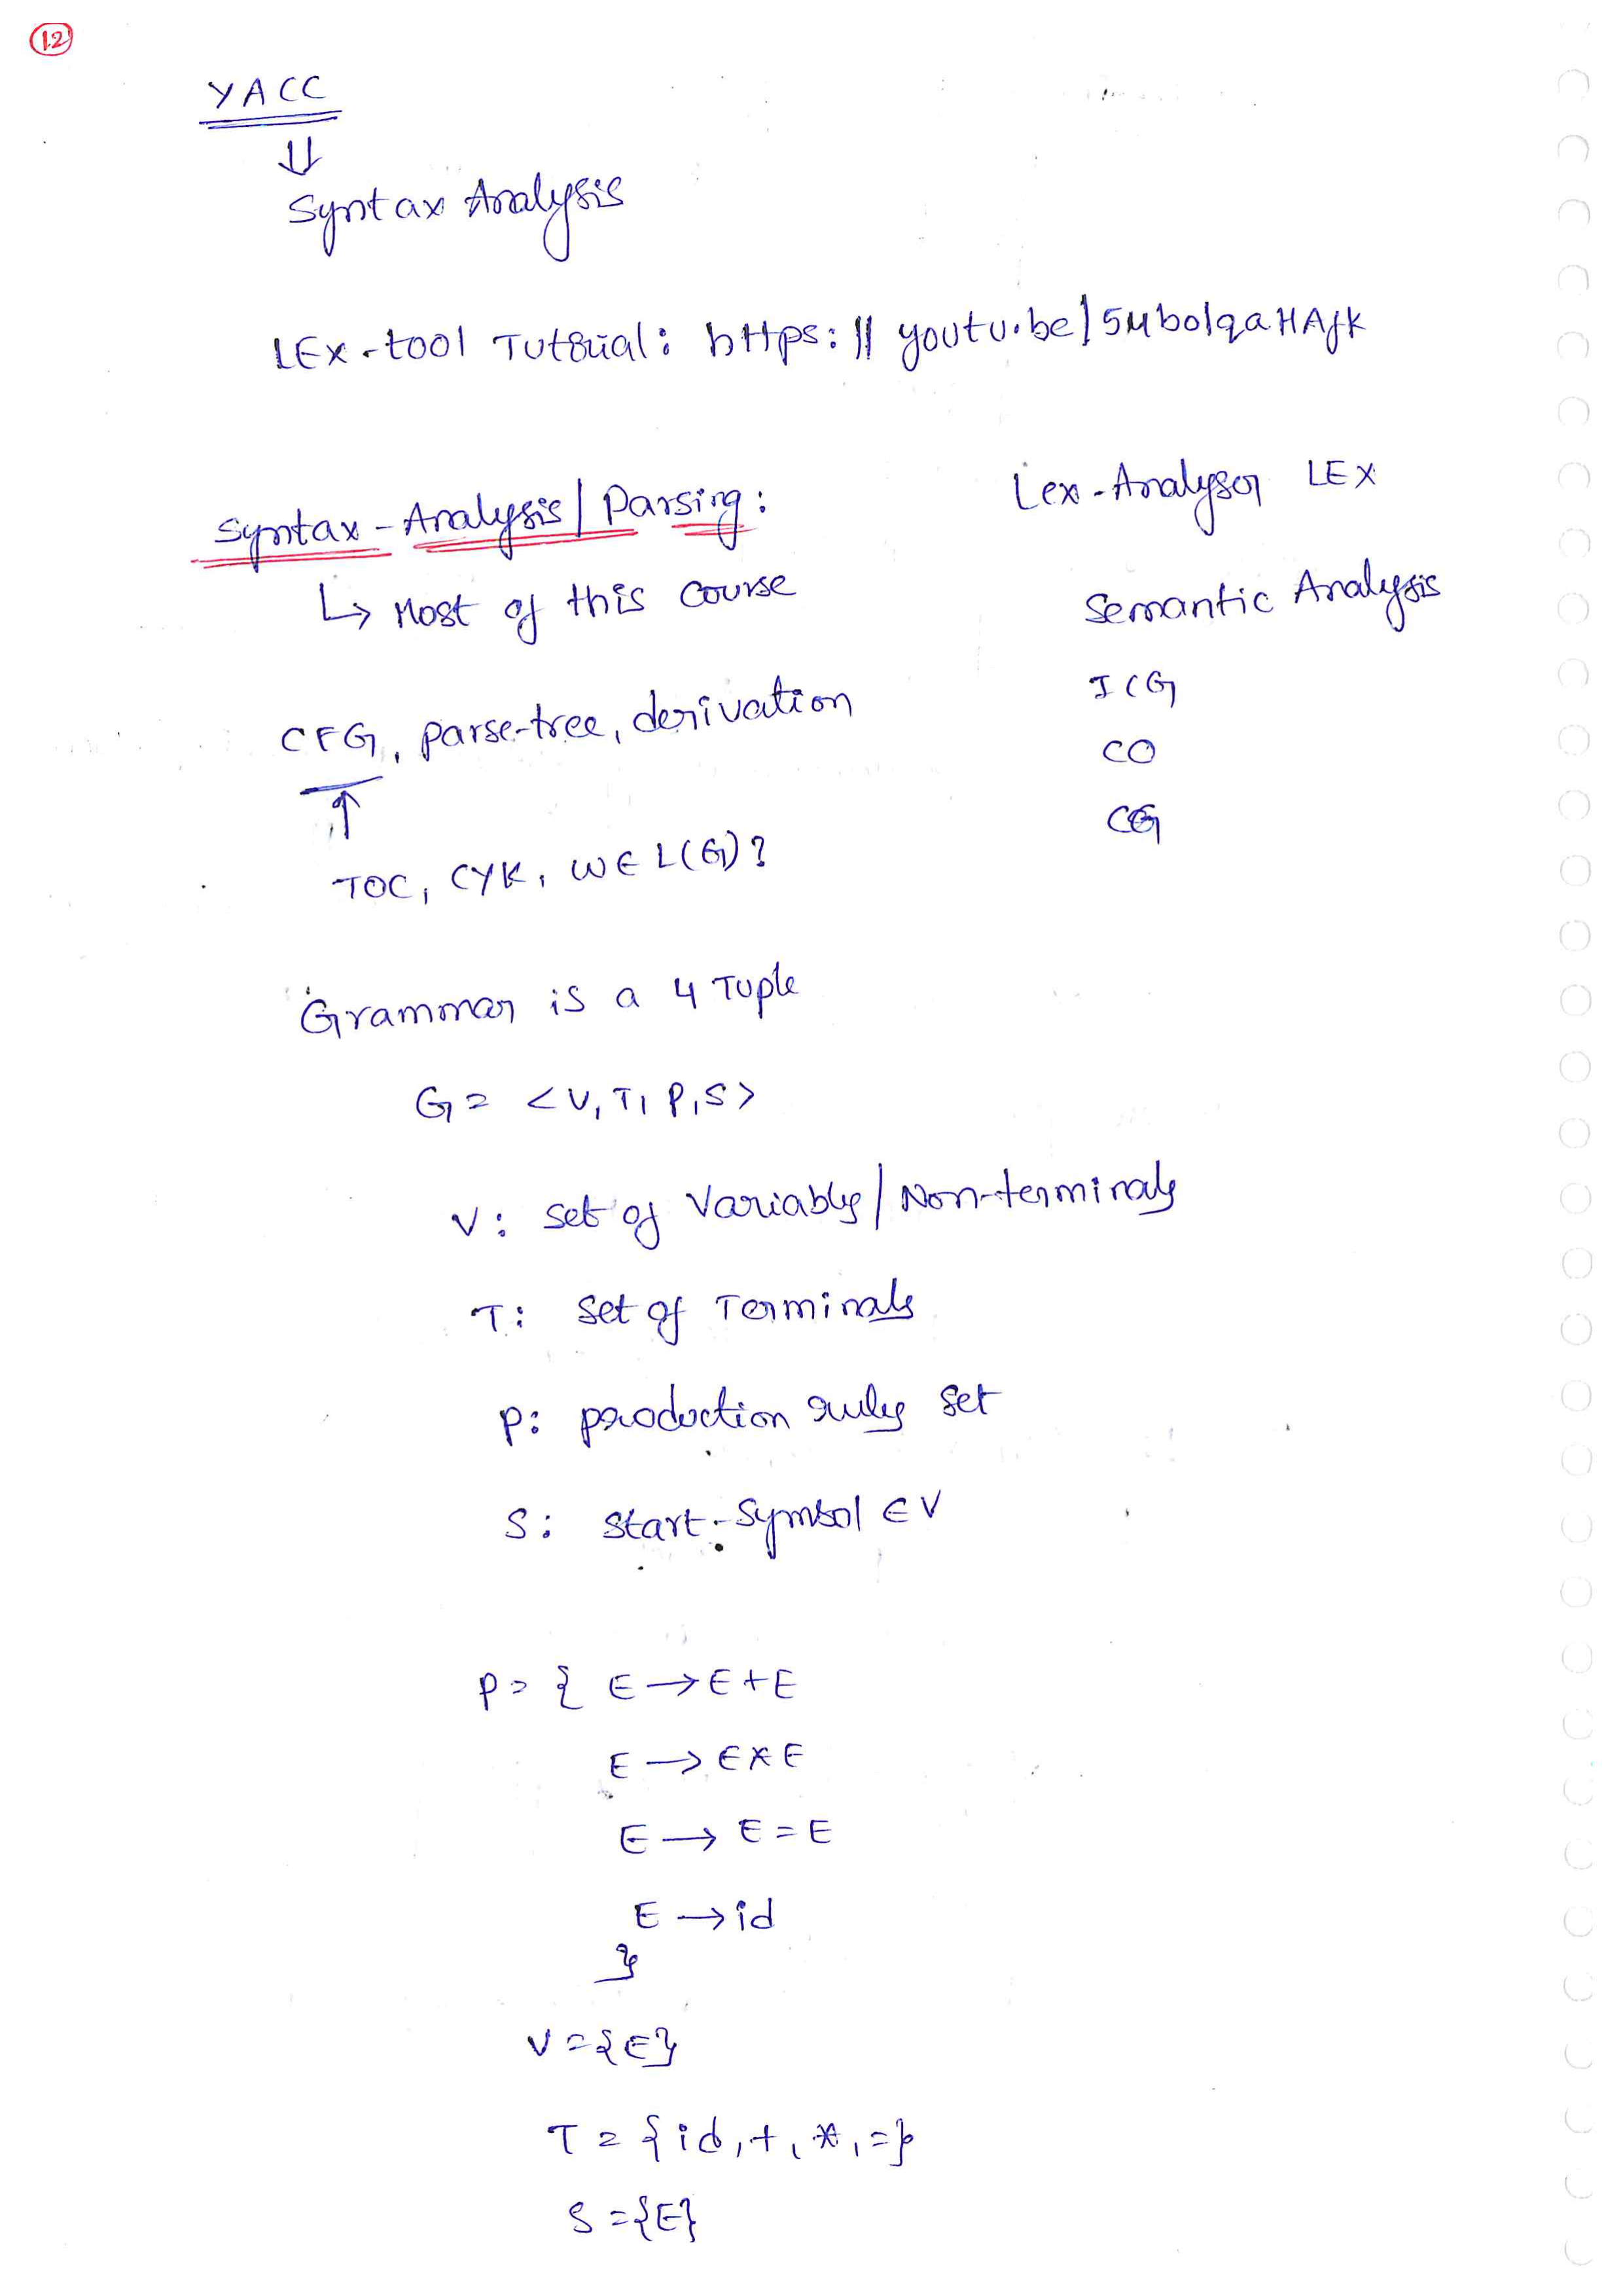 12
YACC
⇓
Syntax Analysis
LEX-tool Tutorial: https://youtu.be/54bo1qaHAfk
Syntax-Analysis/Parsing:
↳ Most of this course
CFG, parse-tree, derivation
↑
TOC, CYK, W ∈ L(G)?
Lex-Analyser LEX
Semantic Analysis
ICG
CO
CG
Grammar is a 4 Tuple
G = <V, T, P, S>
V: set of Variables/Non-terminals
T: set of Terminals
P: production rules set
S: start-symbol ∈ V
P = { E → E+E
E → E*E
E → E=E
E → id
}
V = {E}
T = {id, +, *, =}
S = {E}